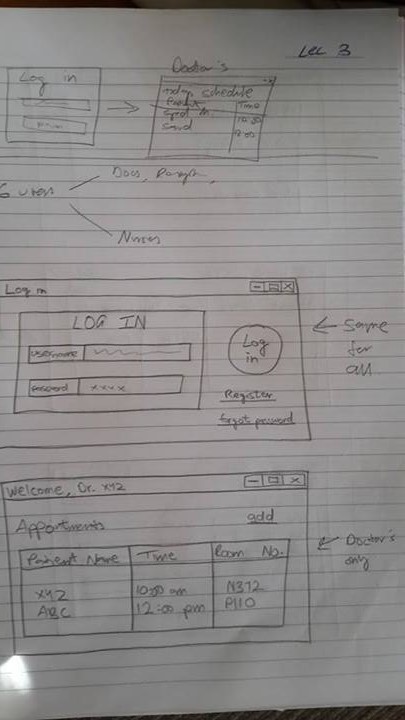 Lec 3
Doctor's
Log in
today schedule
Time
10:30
9:00
Docs,
users
Nurses
Log in
LOG IN
username
password xxxx
Log
in
Register
forgot password
Same
for
all
Welcome, Dr. XYZ
Appointments add
Patient Name Time Room No.
XYZ 10:00 am N312
ABC 12:00 pm P110
Doctor's
only